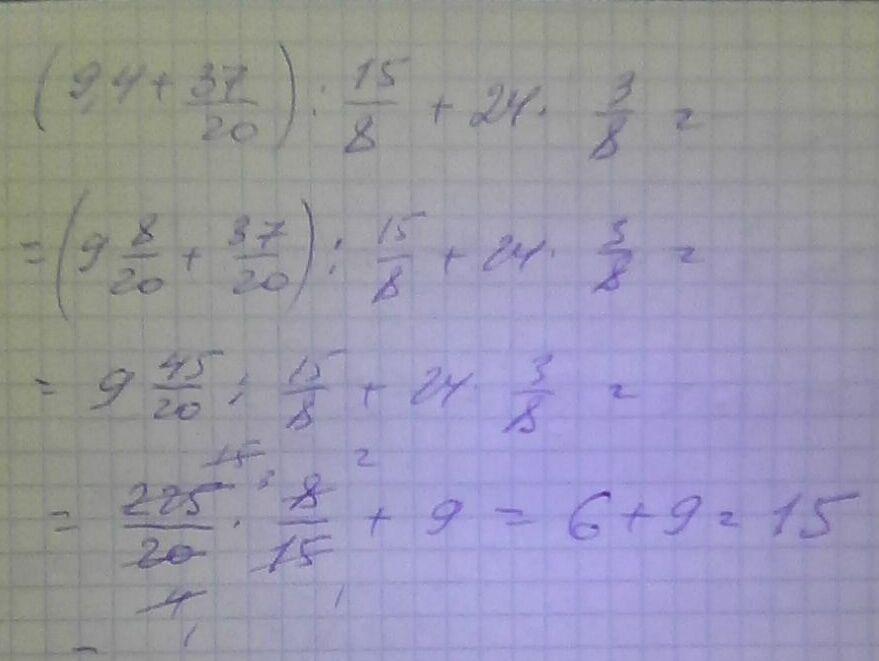 (9,4 + 37/20) : 15/8 + 24 · 3/8 =
= (9 8/20 + 37/20) : 15/8 + 24 · 3/8 =
= 9 45/20 : 15/8 + 24 · 3/8 =
15 3 2
= 225/20 · 8/15 + 9 = 6 + 9 = 15
4 1
1